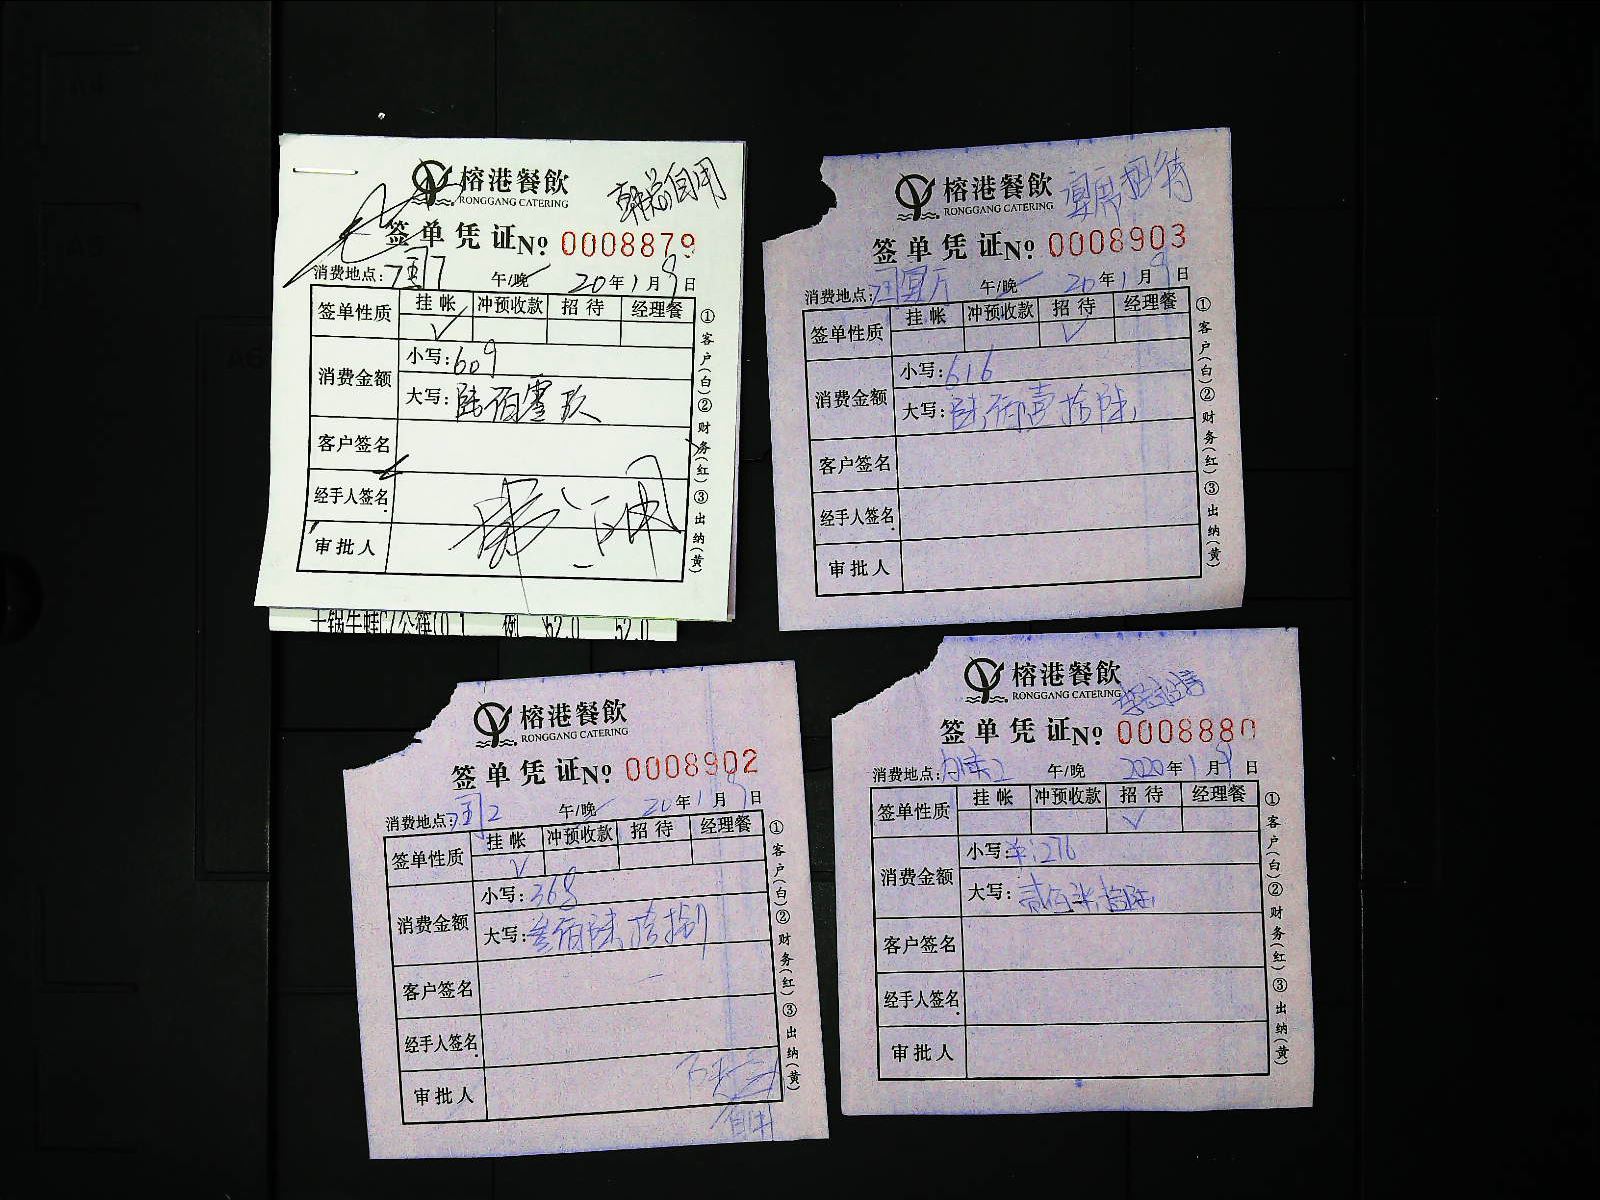 榕港餐飲
RONGGANG CATERING
韩总自用
签单凭证 No 0008879
消费地点: 午/晚 20年1月9日
签单性质 挂帐 冲预收款 招待 经理餐
✓
消费金额 小写: 609
大写: 陆佰零玖
客户签名
经手人签名
审批人
①客户(白)②财务(红)③出纳(黄)
52.0 52.0
榕港餐飲
RONGGANG CATERING
招待
签单凭证 No 0008903
消费地点: 午/晚 20年1月9日
签单性质 挂帐 冲预收款 招待 经理餐
✓
消费金额 小写: 616
大写: 陆佰壹拾陆
客户签名
经手人签名
审批人
①客户(白)②财务(红)③出纳(黄)
榕港餐飲
RONGGANG CATERING
签单凭证 No 0008902
消费地点: 午/晚 20年1月9日
签单性质 挂帐 冲预收款 招待 经理餐
✓
消费金额 小写: 368
大写: 叁佰陆拾捌
客户签名
经手人签名
审批人
自用
①客户(白)②财务(红)③出纳(黄)
榕港餐飲
RONGGANG CATERING
签单凭证 No 0008880
消费地点: 午/晚 2020年1月9日
签单性质 挂帐 冲预收款 招待 经理餐
✓
消费金额 小写: 276
大写: 贰佰柒拾陆
客户签名
经手人签名
审批人
①客户(白)②财务(红)③出纳(黄)